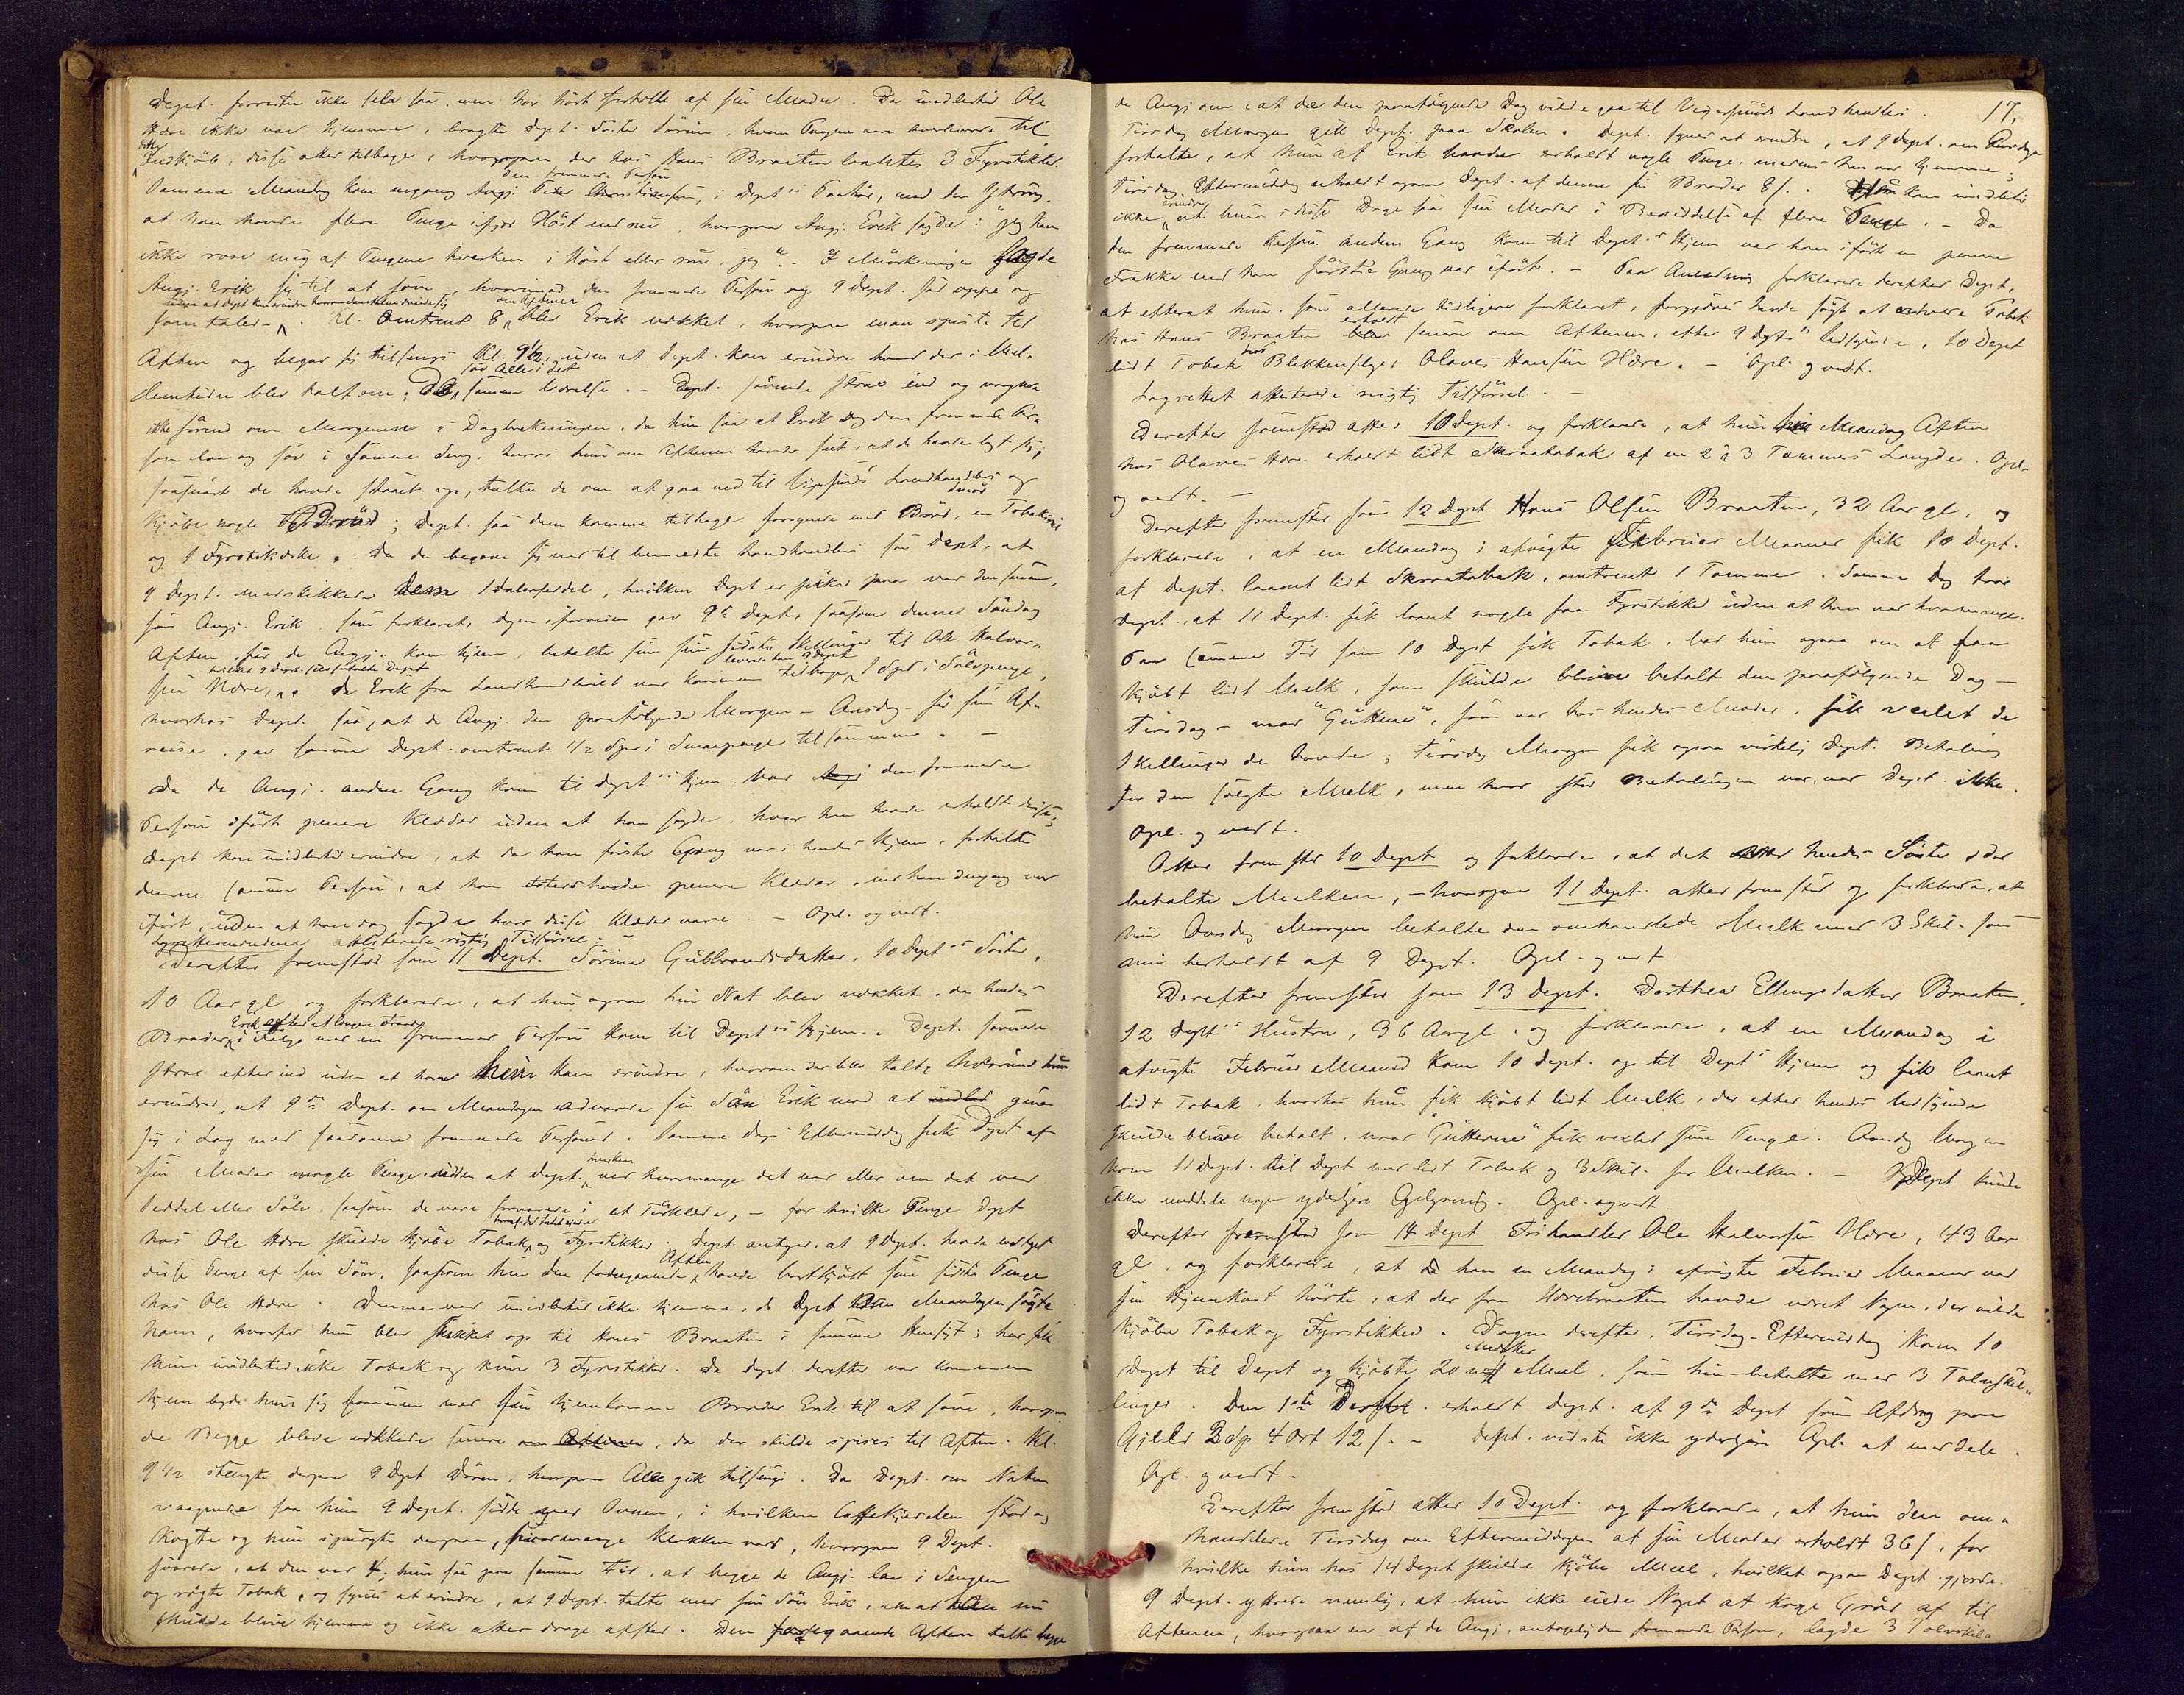 Dept. forresten ikke selv saa, men har hört fortælle af sin Moder. Da imidlertid Ole
Hære ikke var hjemme, bragte Dept. Söster Sörine, hvem Pengene var overleverede til
Indkjöb, disse atter tilbage, hvorpaa der hos Hans Braaten laantes 3 Fyrstikker.
den fremmede Person
Samme Mandag kom engang Angj. i Dept.s Paahör, med den Yttring,
at han havde flere Penge ifjor Höst end nu, hvorpaa Angj. Erik sagde: "jeg kan
ikke rose mig af Pengene hverken i Höst eller nu, jeg". I Mörkningen lagde
Angj. Erik sig til at sove, hvorimod den fremmede Person og 9 Dept. sad oppe og
samtalede. Kl. omtrent 8 om Aftenen blev Erik vækket, hvorpaa man spiste til
Aften og begav sig tilsengs Kl. 9½, uden at Dept. kan erindre hvad der i Mel-
lemtiden blev talt om; da sov Alle i det samme Værelse. - Dept. sovnede strax ind og vaagnede
ikke förend om Morgenen i Dagbrækningen, da hun saa at Erik og den fremmede Per-
son laa og sov i samme Seng, hvori hun om Aftenen havde seet, at de havde lagt sig;
saasnart de havde staaet op, talte de om at gaa ned til Vigersunds Landhandleri og
kjöbe nogle ; Dept. saa dem komme tilbage forsynede med Bröd, Smör, en Tobaksrul
og 1 Fyrstikæske. Da de begave sig ned til bemeldte Landhandleri saa Dept., at
9 Dept. medskikkede dem 1 Dalerseddel, hvilken Dept. er sikker paa var den samme,
som Angj. Erik, som forklaret, Dagen iforveien gav 9de Dept., saasom denne Söndag
Aften, för de Angj. kom hjem, betalte sine sidste Skillinger til Ole Halvor-
sen Hære, hvilket 9 Dept. selv fortalte Dept. Da Erik fra Landhandleriet var kommen tilbage, leverede han 9 Dept. 1 Spd. i Sölvpenge,
hvorhos Dept. saa, at de Angj. den paafölgende Morgen - Onsdag - för sin Af-
reise, gav samme Dept. omtrent ½ Spd. i Smaapenge tilsammen. -
Da de Angj. anden Gang kom til Dept.s Hjem var den fremmede
Person iført penere Klæder uden at han sagde, hvor han havde erholdt disse;
Dept. kan imidlertid erindre, at da han förste Gang var i hendes Hjem, fortalte
denne samme Person, at han havde penere Klæder, end han dengang var
iført, uden at han dog sagde hvor disse Klæder vare. - Opl. og vedt.
Lagrettemændene attesterede rigtig Tilförsel. -
Derefter fremstod som 11 Dept. Sörine Gulbrandsdatter, 10 Dept.s Söster,
10 Aar gl. og forklarede, at hun ogsaa hin Nat blev vækket, da hendes
Broder Erik efter et længere Fravær i Fölge med en fremmed Person kom til Dept.s Hjem. Dept. sovnede
strax efter ind uden at hun kan erindre, hvorom der blev talt, hvorimod hun
erindrer, at 9de Dept. om Mandagen advarede sin Sön Erik mod at give
sig i Lag med saadanne fremmede Personer. Samme Dags Eftermiddag fik Dept. af
sin Moder nogle Penge uden at Dept. hverken ved hvormange det var eller om det var
Seddel eller Sölv, saasom de vare forvarede i et Törklæde, - for hvilke Penge Dept.
hos Ole Hære skulde kjöbe Tobak og Fyrstikker. Dept. antager, at 9 Dept. havde modtaget
disse Penge af sin Sön, saasom hun den foregaaende Aften havde bortkjöbt sine sidste Penge
hos Ole Hære. Denne var imidlertid ikke hjemme, da Dept. Mandagen sögte
ham, hvorfor hun blev skikket op til Hans Braaten i samme Hensigt; her fik
hun imidlertid ikke Tobak og kun 3 Fyrstikker. Da Dept. derefter var kommen
hjem lagde hun sig sammen med sin hjemkomne Broder Erik til at sove, hvorpaa
de Begge bleve vækkede senere om Aftenen, da der skulde spises til Aften. Kl.
9½ stengte derpaa 9 Dept. Dören, hvorpaa Alle gik tilsengs. Da Dept. om Natten
vaagnede saa hun 9 Dept. sidde ved Ovnen, i hvilken Caffekjedelen stod og
kogte og hun spurgte derpaa, hvormange Klokken var, hvorpaa 9 Dept.
svarede, at den var 4; hun saa paa samme Tid, at begge de Angj. laa i Sengen
og rögte Tobak, og synes at erindre, at 9 Dept. talte med sin Sön Erik, om at han nu
skulde blive hjemme og ikke atter drage afsted. Den foregaaende Aften talte begge
17.
de Angj. om, at de den paafölgende Dag vilde gaa til Vigersunds Landhandleri.
Tirsdag Morgen gik Dept. paa Skolen. Dept. synes at erindre, at 9 Dept. om Onsdagen
fortalte, at hun af Erik havde erholdt nogle Penge, medens han var hjemme;
Tirsdag Eftermiddag erholdt ogsaa Dept. af denne sin Broder 8 s. kan imidlertid
ikke erindre, at hun i disse Dage saa sin Moder i Besiddelse af flere Penge. - Da
den fremmede Person anden Gang kom til Dept.s Hjem var han iført en penere
Frakke end han förste Gang var iført. - Paa Anledning forklarede derefter Dept.,
at efterat hun, som allerede tidligere forklaret, forgjæves havde sögt at erhverve Tobak
hos Hans Braaten erholdt senere om Aftenen, efter 9 Dept.s Udsigende, 10 Dept.
lidt Tobak hos Blikkenslager Olaves Hansen Hære. - Opl. og vedt.
Lagrettet attesterede rigtig Tilförsel. -
Derefter fremstod atter 10 Dept. og forklarede, at hun hin Mandag Aften
hos Olaves Hære erholdt lidt Skraatobak af en 2 à 3 Tommers Længde. Opl.
og vedt. -
Derefter fremstod som 12 Dept. Hans Olsen Braaten, 32 Aar gl., og
forklarede, at en Mandag i afvigte Februar Maaned fik 10 Dept.
af Dept. laant lidt Skraatobak, omtrent 1 Tomme. Samme Dag tror
Dept., at 11 Dept. fik laant nogle faa Fyrstikker uden at han ved hvormange.
Paa samme Tid som 10 Dept. fik Tobak, bad hun ogsaa om at faa
kjöbt lidt Melk, som skulde blive betalt den paafölgende Dag -
Tirsdag - naar "Gutterne", som var hos hendes Moder, fik vexlet de
Skillinger de havde; Tirsdag Morgen fik ogsaa virkelig Dept. Betaling
for den solgte Melk, men hvor stor Betalingen var, ved Dept. ikke.
Opl. og vedt.
Atter fremstod 10 Dept. og forklarede, at det var hendes Söster, der
betalte Melken, - hvorpaa 11 Dept. atter fremstod og forklarede, at
hun Onsdag Morgen betalte den omhandlede Melk med 3 Skil. som
hun erholdt af 9 Dept. Opl. og vedt.
Derefter fremstod som 13 Dept. Dorthea Ellingsdatter Braaten,
12 Dept.s Hustru, 36 Aar gl., og forklarede, at en Mandag i
afvigte Februar Maaned kom 10 Dept. op til Dept.s Hjem og fik laant
lidt Tobak, hvorhos hun fik kjöbt lidt Melk, der efter hendes Udsigende
skulde blive betalt, naar "Gutterne" fik vexlet sine Penge. Onsdag Morgen
kom 11 Dept. til Dept. med lidt Tobak og 3 Skil. for Melken. - Dept. kunde
ikke meddele nogen yderligere Oplysning. Opl. og vedt.
Derefter fremstod som 14 Dept. Frihandler Ole Halvorsen Hære, 43 Aar
gl., og forklarede, at han en Mandag i afvigte Februar Maaned ved
sin Hjemkomst hörte, at der fra Hærebraaten havde været Nogen, der vilde
kjöbe Tobak og Fyrstikker. Dagen derefter, Tirsdag Eftermiddag kom 10
Dept. til Dept. og kjöbte 20 Mel, som hun betalte med 3 Tolvskil-
linger. Den 1ste erholdt Dept. af 9de Dept. som Afdrag paa
Gjeld 2 Sp 4 Ort 12 s. - Dept. vidste ikke yderligere Opl. at meddele.
Opl. og vedt. -
Derefter fremstod atter 10 Dept. og forklarede, at hun den om-
handlede Tirsdag om Eftermiddagen af sin Moder erholdt 36 s., for
hvilke hun hos 14 Dept. skulde kjöbe Mel, hvilket ogsaa Dept. gjorde.
9 Dept. yttrede nemlig, at hun ikke eiede Noget at koge Gröd af til
Aftenen, hvorpaa en af de Angj., antagelig den fremmede Person, lagde 3 Tolvskil-